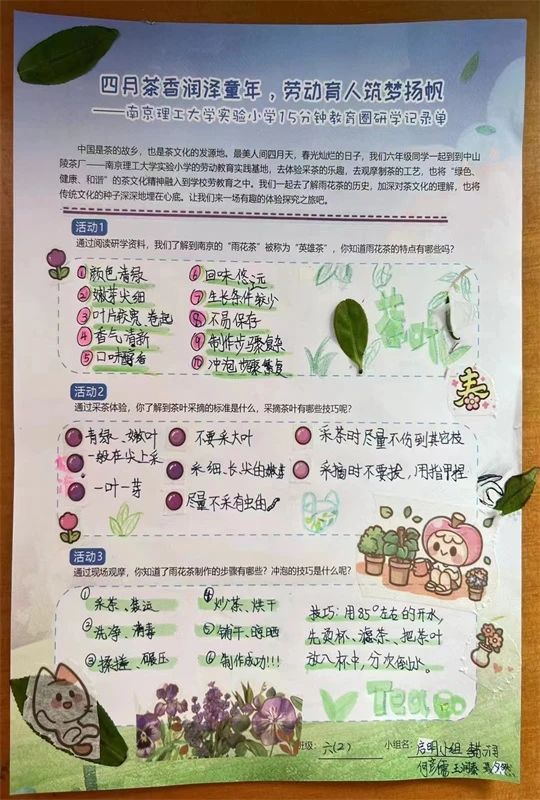 四月茶香润泽童年，劳动育人筑梦扬帆
——南京理工大学实验小学15分钟教育圈研学记录单
中国是茶的故乡，也是茶文化的发源地。最美人间四月天，春光灿烂的日子，我们六年级同学一起到到中山
陵茶厂——南京理工大学实验小学的劳动教育实践基地，去体验采茶的乐趣，去观摩制茶的工艺，也将“绿色、
健康、和谐”的茶文化精神融入到学校劳动教育之中。我们一起去了解雨花茶的历史，加深对茶文化的理解，也将
传统文化的种子深深地埋在心底。让我们来一场有趣的体验探究之旅吧。
活动1
通过阅读研学资料，我们了解到南京的“雨花茶”被称为“英雄茶”，你知道雨花茶的特点有哪些吗？
①颜色清绿
②嫩芽尖细
③叶片较宽、卷起
④香气清新
⑤口味
⑥回味悠远
⑦生长条件较少
⑧不易保存
⑨制作步骤复杂
⑩冲泡步骤繁复
茶叶
春
活动2
通过采茶体验，你了解到茶叶采摘的标准是什么，采摘茶叶有哪些技巧呢？
青绿、嫩叶
一般在尖上采
一叶一芽
不要采大叶
采细、长尖的嫩
尽量不采有虫的
采茶时尽量不伤到其它枝
采摘时不要拔，用指甲掐
活动3
通过现场观摩，你知道了雨花茶制作的步骤有哪些？冲泡的技巧是什么呢？
①采茶、装运
②洗净、消毒
③揉搓、碾压
④炒茶、烘干
⑤铺开、晾晒
⑥制作成功!!!
技巧：用85°左右的开水，
先烫杯、滤茶、把茶叶
放入杯中，分次倒水。
Tea
班级：六(2)
小组名：启明小组